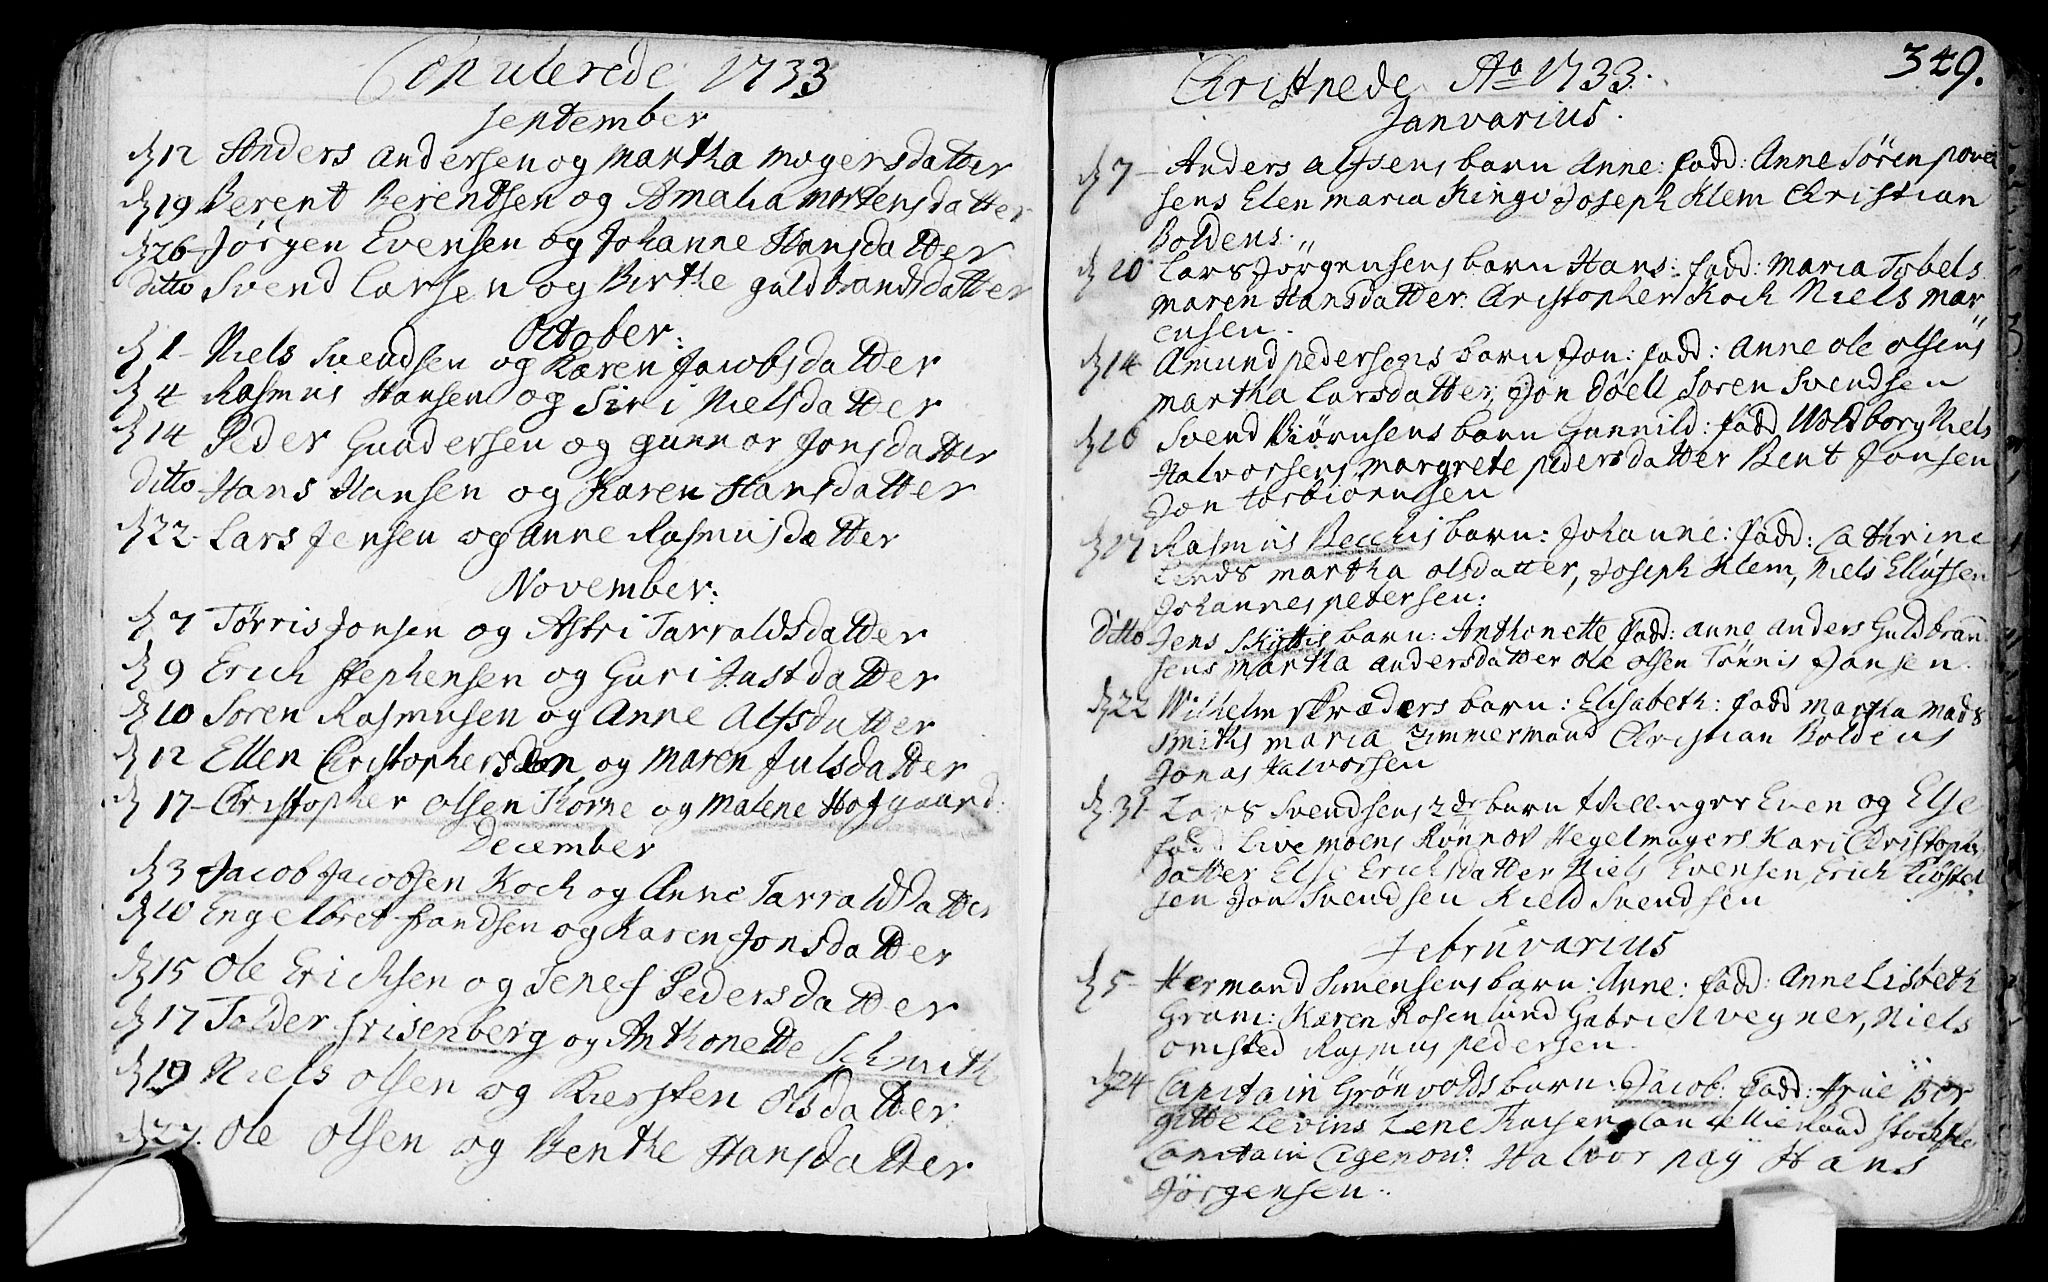 Copulerede 1733
September
d 12 Anders Andersen og Martha Mogersdatter
d 19 Berent Berentsen og Amalia Mortensdatter
d 26 Jörgen Evensen og Johanne Hansdatter
ditto Svend Larsen og Birthe Guldbrandsdatter
October:
d 1 Niels Svendsen og Karen Jacobsdatter
d 4 Rasmus Hansen og Siri Nielsdatter
d 14 Peder Gundersen og Gunnor Jonsdatter
ditto Hans Hansen og Karen Hansdatter
d 22 Lars Jensen og Anne Rasmusdatter
November:
d 7 Törris Jonsen og Astri Tarraldsdatter
d 9 Erich Stephensen og Guri Justdatter
d 10 Soren Rasmusen og Anne Alfsdatter
d 12 Ellen Christophersden og Maren Julsdatter
d 17 Christopher Olsen Korne og Malene Hofgaard
December
d 3 Jacob Jacobsen Koch og Anne Tarraldsdatter
d 10 Engelbret frandsen og Karen Jonsdatter
d 15 Ole Ericksen og Jenes Pedersdatter
d 17 Tolder frisenberg og Anthonette Schmith
d 19 Niels Olsen og Kiersten Olsdatter
d 27. Ole Olsen og Benthe Hansdatter
349.
Christnede Ao 1733.
Janvarius.
d 7 Anders Alfsens barn Anne: fadd: Anne Sören povel
sens Elen Maria Ringi Joseph Klem Christian
Boldens.
d 10 Lars Jörgensens barn Hans: fadd: Maria Tobels
Maren Hansdatter: Christopher Koch Niels Mar
ensen.
d 14 Amund pedersens barn Jon: fadd: Anne Ole Olsens
Martha Larsdatter, Jon döell Soren Svendsen
d 16 Svend Biörnsens barn Gunnild: fadd Woldborg Niels
Halvorsens Margrete pedersdatter Bent Jonsen
Jon Torbiörnsen
d 17 Rasmus Becchis barn: Johanne: fadd: Cathrine
Linds Martha Olsdatter, Joseph Klem, Niels Ellufsen
Johannes petersen:
ditto Jens Skyttis barn: Anthonette fadd: Anne Anders Guldbran
sens Martha Andersdatter Ole Olsen Tönnis Jansen.
d 22 Wilhelm skræders barn: Elisabeth: fadd Martha Mads
Smiths Maria Zimmermand Christian Boldens
Jonas Halvorsen
d 31 Lars Svendsens 2de barn tvillinger Even og Else
fadd: Live Moens Rönnov Hegelmagers Kari Christophers
datter Else Erichsdatter Niels Evensen, Erich
sen Jon Svendsen Kield Svendsen
Februvarius
d 5 Hermand Simensens barn: Anne: fadd: Anne Lisbeth
Gram: Karen Rosenlund Gabriel Wegner, Niels
Omsted Rasmus pedersen.
d 24 Capitain Grönvolds barn: Jacob: fadd: frue Bor
gitte Levins Lene
Capitain Halvor paÿ Hans
Jörgensen.